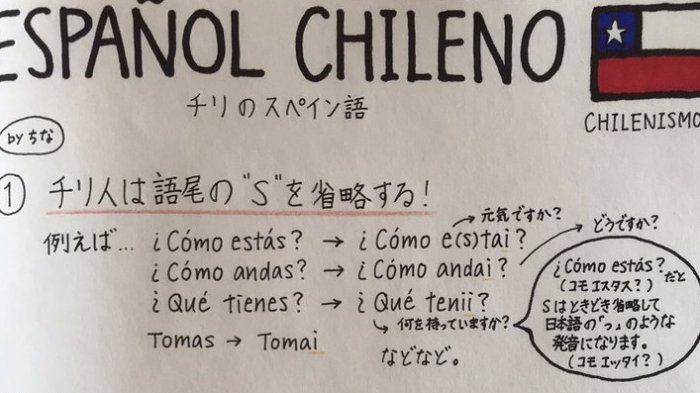 ESPAÑOL CHILENO
チリのスペイン語
by ちな
CHILENISMO
① チリ人は語尾の"S"を省略する!
例えば... ¿Cómo estás? → ¿Cómo e(s)tai? → 元気ですか?
¿Cómo andas? → ¿Cómo andai? → どうですか?
¿Qué tienes? → ¿Qué tenii?
→ 何を持っていますか?
Tomas → Tomai
などなど。
¿Cómo estás? だと
(コモ エスタス?)
Sはときどき省略して
日本語の「っ」のような
発音になります。
(コモ エッタイ?)